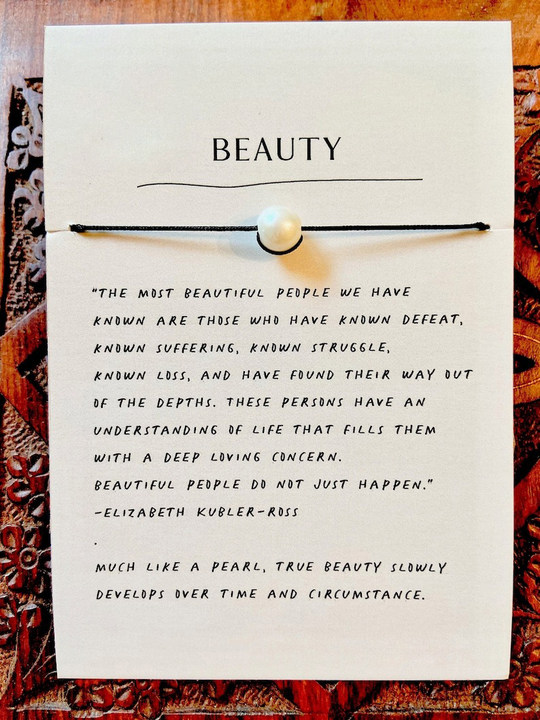 BEAUTY
"THE MOST BEAUTIFUL PEOPLE WE HAVE
KNOWN ARE THOSE WHO HAVE KNOWN DEFEAT,
KNOWN SUFFERING, KNOWN STRUGGLE,
KNOWN LOSS, AND HAVE FOUND THEIR WAY OUT
OF THE DEPTHS. THESE PERSONS HAVE AN
UNDERSTANDING OF LIFE THAT FILLS THEM
WITH A DEEP LOVING CONCERN.
BEAUTIFUL PEOPLE DO NOT JUST HAPPEN."
-ELIZABETH KUBLER-ROSS
.
MUCH LIKE A PEARL, TRUE BEAUTY SLOWLY
DEVELOPS OVER TIME AND CIRCUMSTANCE.